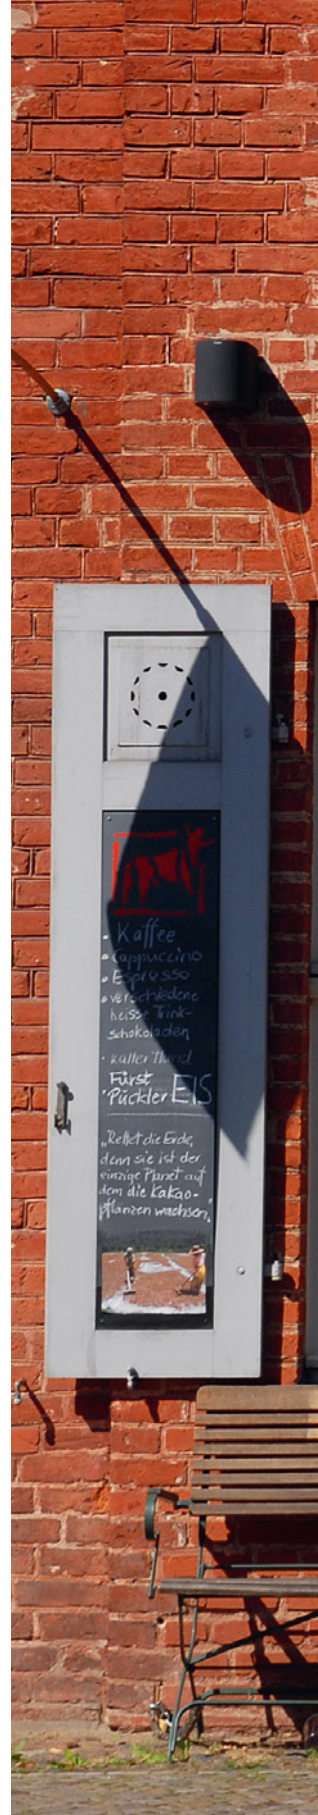 • Kaffee
• Cappuccino
• Espresso
• verschiedene
heisse Trink-
schokoladen
• kalter Hund
Fürst
• Pückler EIS
„Rettet die Erde,
denn sie ist der
einzige Planet auf
dem die Kakao-
pflanzen wachsen."